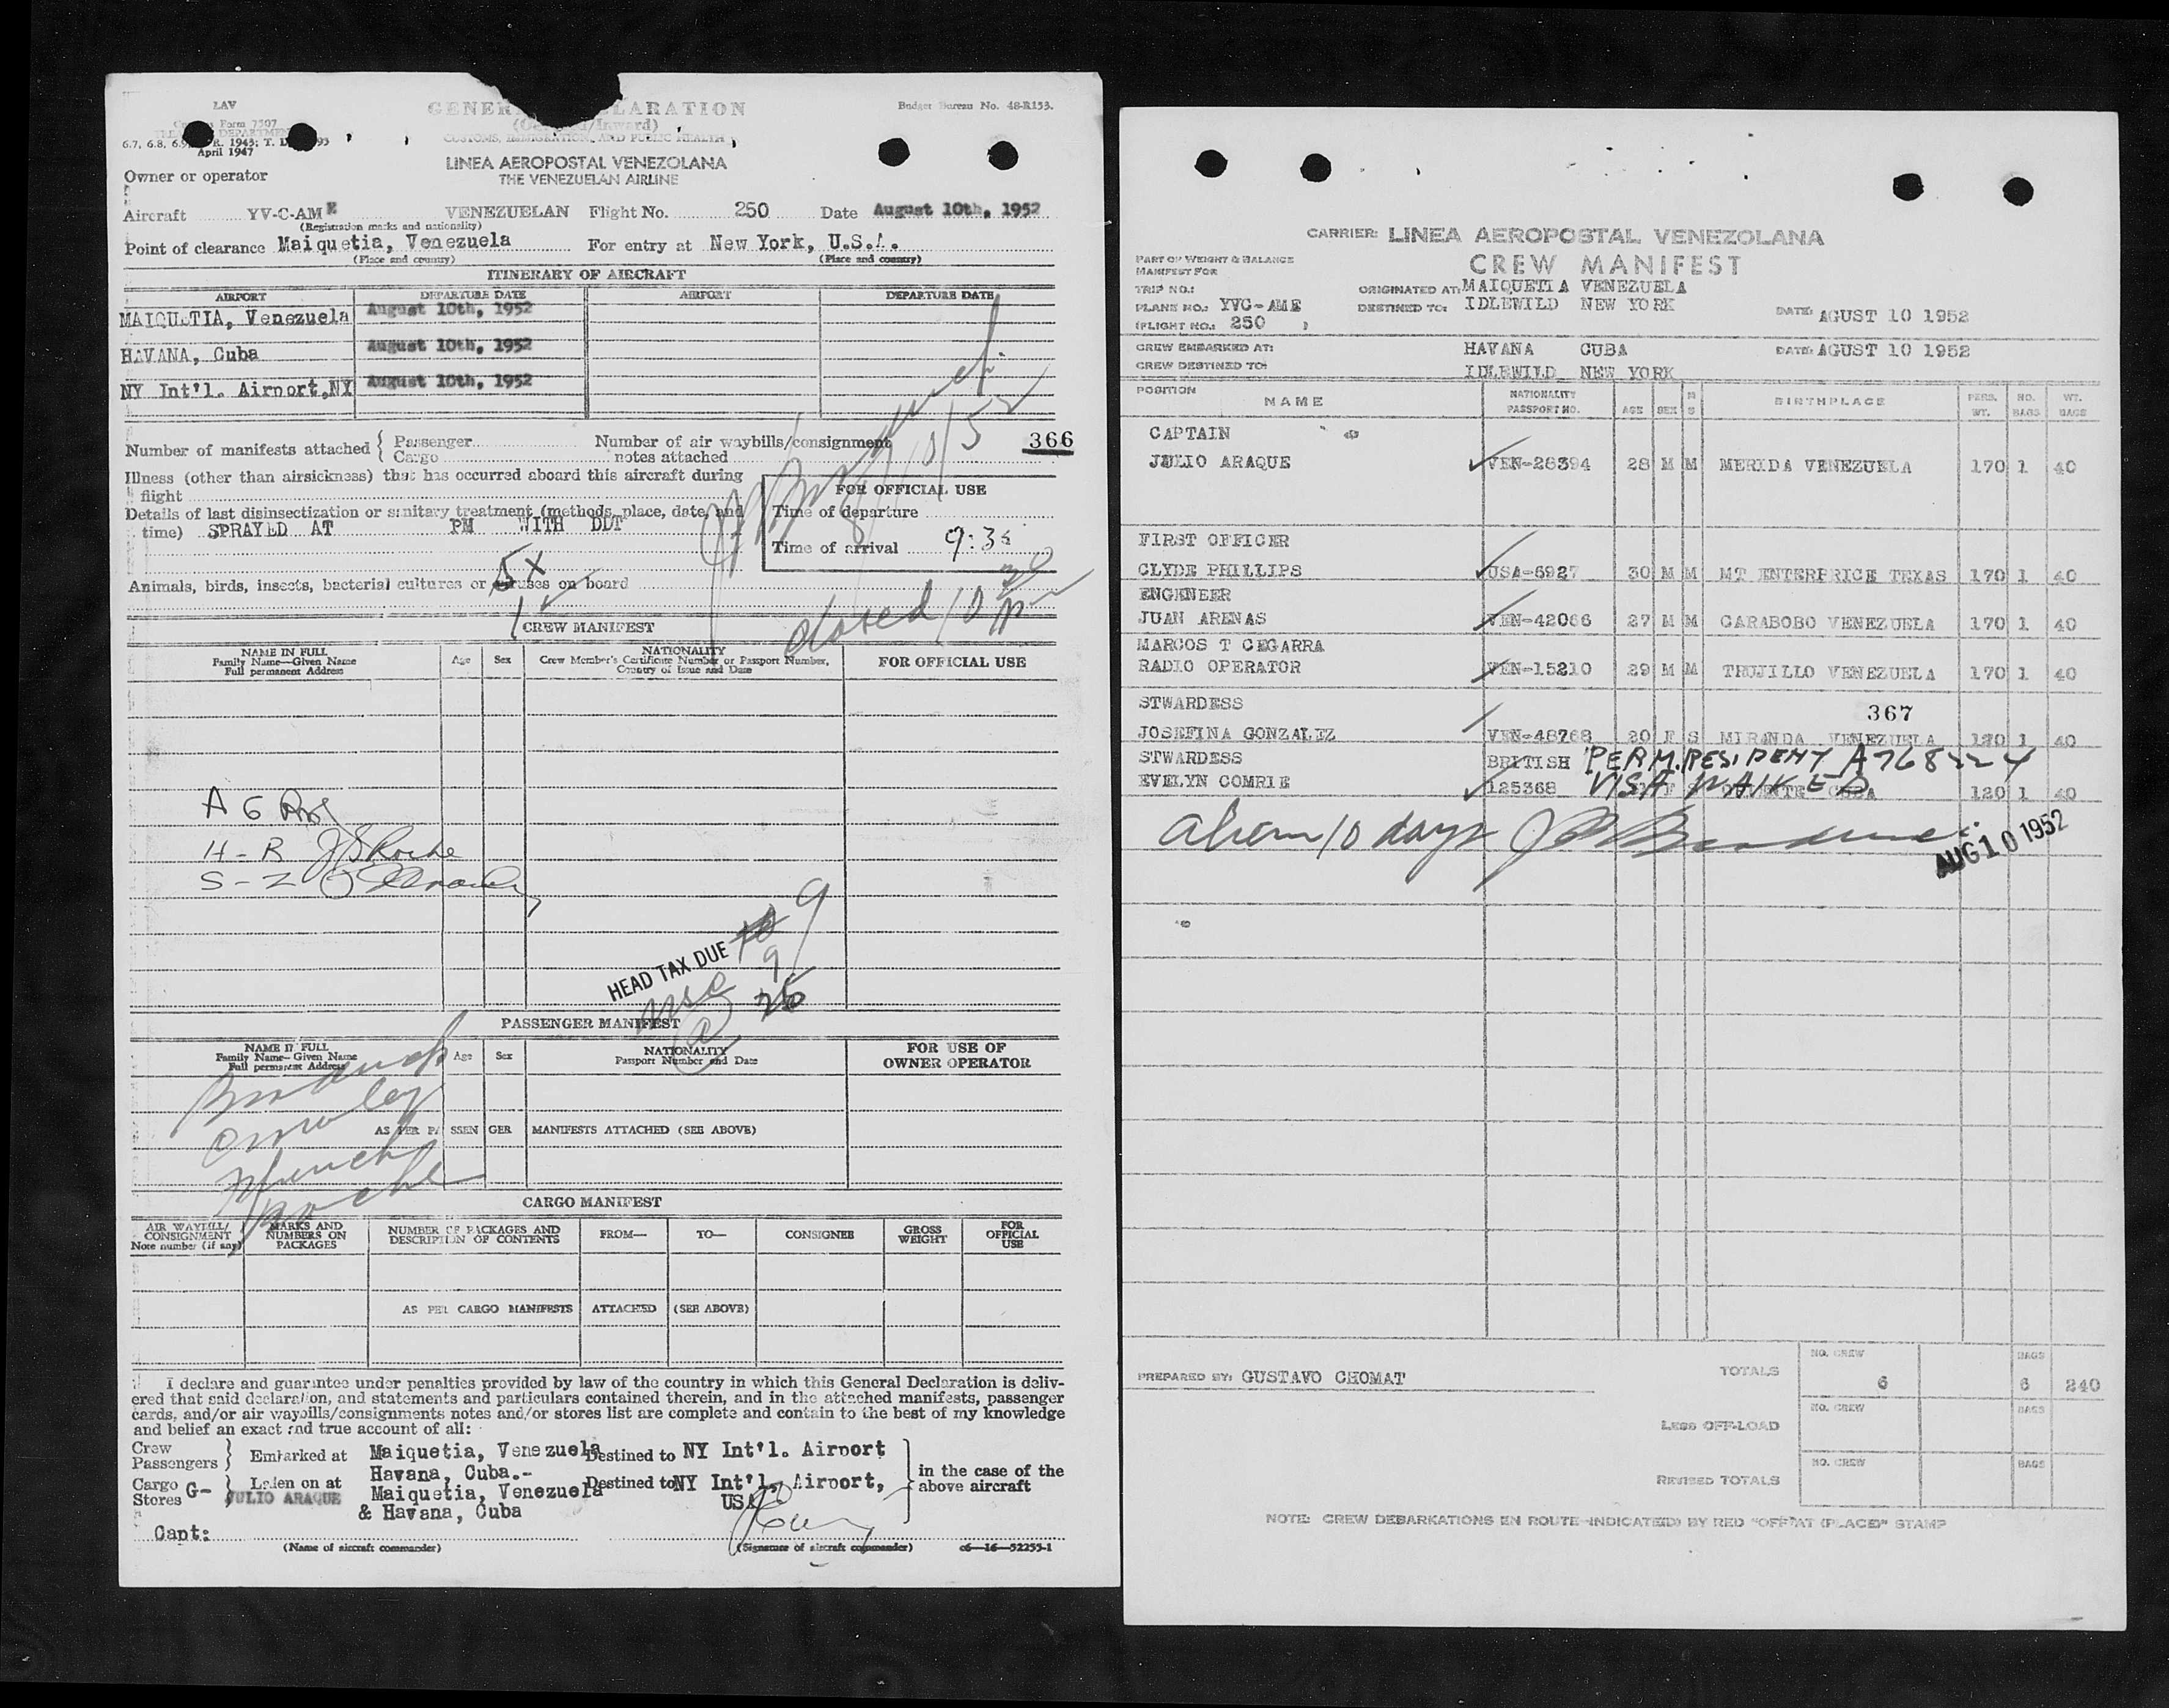 LAV
GENER LARATION
Budget Bureau No. 48-R153.
Form 7507
CUSTOMS, IMMIGRATION, AND PUBLIC HEALTH
April 1947
LINEA AEROPOSTAL VENEZOLANA
THE VENEZUELAN AIRLINE
Owner or operator
Aircraft YV-C-AME VENEZUELAN Flight No. 250 Date August 10th, 1952
(Registration marks and nationality)
Point of clearance Maiquetia, Venezuela For entry at New York, U.S.A.
(Place and country) (Place and country)
ITINERARY OF AIRCRAFT
AIRPORT DEPARTURE DATE AIRPORT DEPARTURE DATE
MAIQUETIA, Venezuela August 10th, 1952
HAVANA, Cuba August 10th, 1952
NY Int'l. Airport,NY August 10th, 1952
Number of manifests attached { Passenger Number of air waybills/consignment 366
Cargo notes attached
Illness (other than airsickness) that has occurred aboard this aircraft during
flight
FOR OFFICIAL USE
Details of last disinsectization or sanitary treatment (methods, place, date, and
time) SPRAYED AT PM WITH DDT
Time of departure
Time of arrival 9:35
5X
Animals, birds, insects, bacterial cultures or viruses on board
closed 10 30 pm
CREW MANIFEST
NAME IN FULL
Family Name—Given Name
Full permanent Address
Age Sex
NATIONALITY
Crew Member's Certificate Number or Passport Number,
Country of Issue and Date
FOR OFFICIAL USE
A G
H-R J S Roche
S-Z
HEAD TAX DUE 9
9
PASSENGER MANIFEST
NAME IN FULL
Family Name—Given Name
Full permanent Address
Age Sex
NATIONALITY
Passport Number and Date
FOR USE OF
OWNER OPERATOR
AS PER PASSENGER MANIFESTS ATTACHED (SEE ABOVE)
Roche
CARGO MANIFEST
AIR WAYBILL/
CONSIGNMENT
Note number (if any)
MARKS AND
NUMBERS ON
PACKAGES
NUMBER OF PACKAGES AND
DESCRIPTION OF CONTENTS
FROM— TO— CONSIGNEE
GROSS
WEIGHT
FOR
OFFICIAL
USE
AS PER CARGO MANIFESTS ATTACHED (SEE ABOVE)
I declare and guarantee under penalties provided by law of the country in which this General Declaration is deliv-
ered that said declaration, and statements and particulars contained therein, and in the attached manifests, passenger
cards, and/or air waybills/consignments notes and/or stores list are complete and contain to the best of my knowledge
and belief an exact and true account of all:
Crew
Passengers } Embarked at Maiquetia, Venezuela Destined to NY Int'l. Airport
Havana, Cuba.-
Cargo
Stores G- } Laden on at Maiquetia, Venezuela Destined to NY Int'l. Airport,
& Havana, Cuba USA
in the case of the
above aircraft
JULIO ARAQUE
Capt:
(Name of aircraft commander) (Signature of aircraft commander) c6—16—52255-1
CARRIER: LINEA AEROPOSTAL VENEZOLANA
CREW MANIFEST
PART OF WEIGHT & BALANCE
MANIFEST FOR
TRIP NO.: ORIGINATED AT: MAIQUETIA VENEZUELA
PLANE NO.: YVC-AME DESTINED TO: IDLEWILD NEW YORK DATE: AGUST 10 1952
(FLIGHT NO.: 250 )
CREW EMBARKED AT: HAVANA CUBA DATE: AGUST 10 1952
CREW DESTINED TO: IDLEWILD NEW YORK
POSITION
NAME
NATIONALITY
PASSPORT NO.
AGE SEX M S BIRTHPLACE PERS. WT. NO. BAGS WT. BAGS
CAPTAIN
JULIO ARAQUE VEN-28394 28 M M MERIDA VENEZUELA 170 1 40
FIRST OFFICER
CLYDE PHILLIPS USA-6927 30 M M MT ENTERPRICE TEXAS 170 1 40
ENGENEER
JUAN ARENAS VEN-42066 27 M M CARABOBO VENEZUELA 170 1 40
MARCOS T CEGARRA
RADIO OPERATOR VEN-15210 29 M M TRUJILLO VENEZUELA 170 1 40
STWARDESS 367
JOSEFINA GONZALEZ VEN-48768 20 F S MIRANDA VENEZUELA 120 1 40
STWARDESS BRITISH PERM. RESIDENT
EVELYN COMRIE 125368 VISA WAIVED 120 1 40
10 days
AUG 10 1952
PREPARED BY: GUSTAVO CHOMAT
TOTALS NO. CREW 6 BAGS 6 240
LESS OFF-LOAD NO. CREW BAGS
REVISED TOTALS NO. CREW BAGS
NOTE: CREW DEBARKATIONS EN ROUTE INDICATE(D) BY RED "OFF AT (PLACE)" STAMP